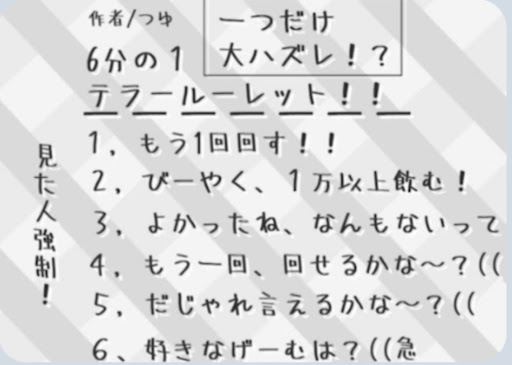 作者/つゆ
一つだけ
大ハズレ！？
6分の1
テラールーレット！！
見た人強制！
1，もう1回回す！！
2，びーやく、1万以上飲む！
3，よかったね、なんもないって
4，もう一回、回せるかな〜？((
5，だじゃれ言えるかな〜？((
6、好きなげーむは？((急